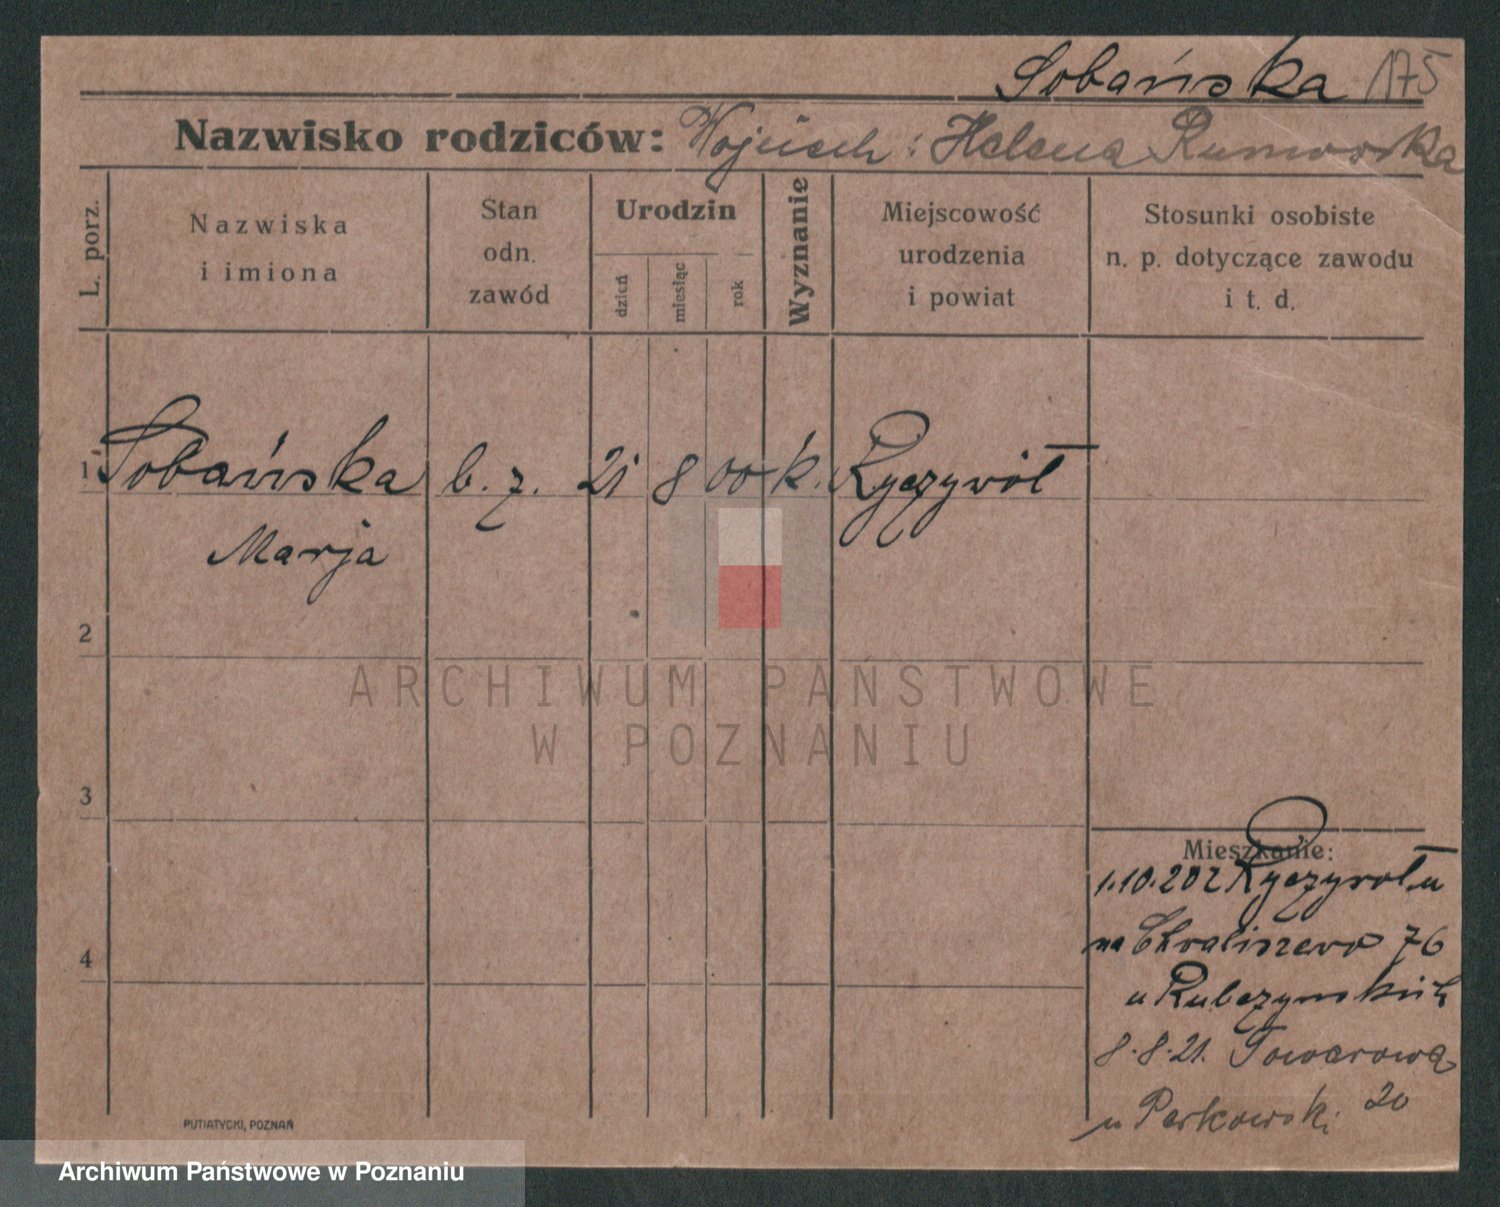 Sobańska 175
Nazwisko rodziców: Wojciech i Helena
L. porz.
Nazwiska
i imiona
Stan
odn.
zawód
Urodzin
dzień
miesiąc
rok
Wyznanie
Miejscowość
urodzenia
i powiat
Stosunki osobiste
n. p. dotyczące zawodu
i t. d.
1 Sobańska b. z. 21 8 00 k. Ryczywół
Marja
2
ARCHIWUM PAŃSTWOWE
W POZNANIU
3
Mieszkanie:
1.10.20 z Ryczywołu
na Chwaliszewo 76
u Rubczyńskich
4
8.8.21. Towarowa
20
u Perkowski
PUTIATYCKI, POZNAŃ
Archiwum Państwowe w Poznaniu